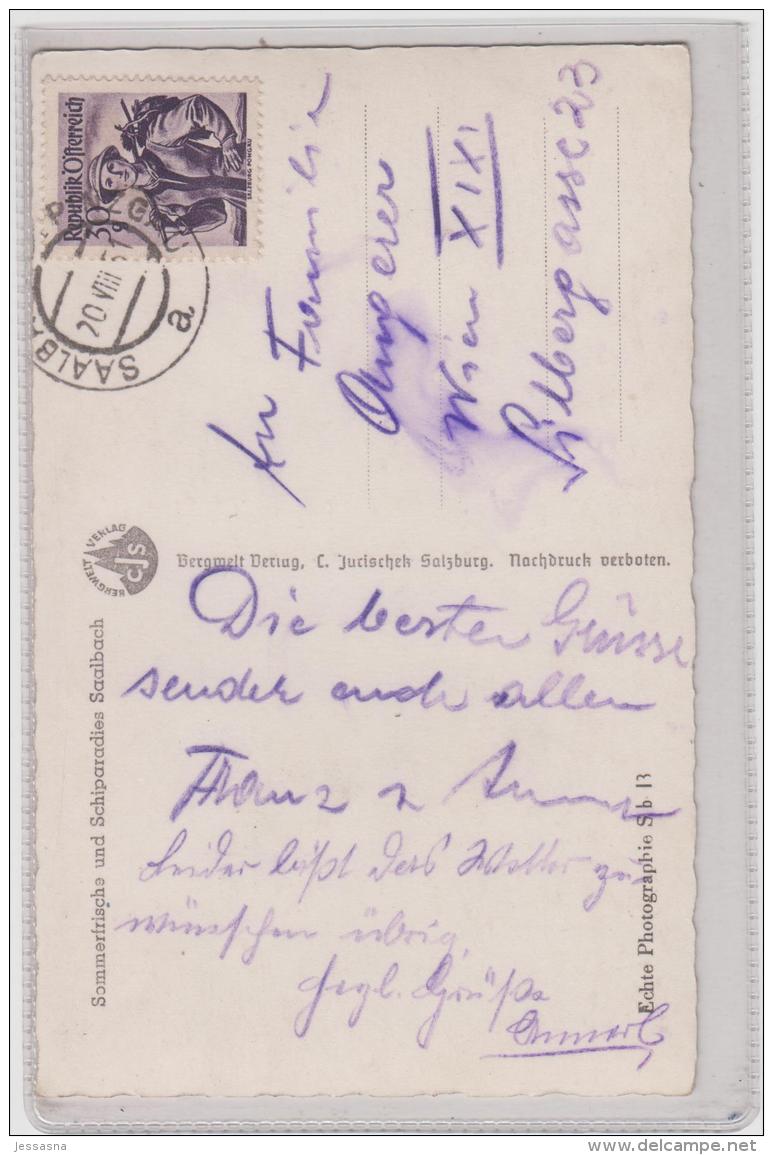 Republik Österreich
30
SALZBURG, PONGAU
SAALBA
20 VIII 51
a
An Familie
Angerer
Wien XIX
Silbergasse 23
BERGWELT VERLAG
CJS
Bergwelt Verlag, C. Jurischek Salzburg. Nachdruck verboten.
Die besten Grüsse
sendet euch allen
Franz u Anna
Leider läßt das Wetter zu
wünschen übrig.
Hrzl. Grüße
Annerl
Sommerfrische und Schiparadies Saalbach
Echte Photographie Sb 13
jessasna
www.delcampe.net